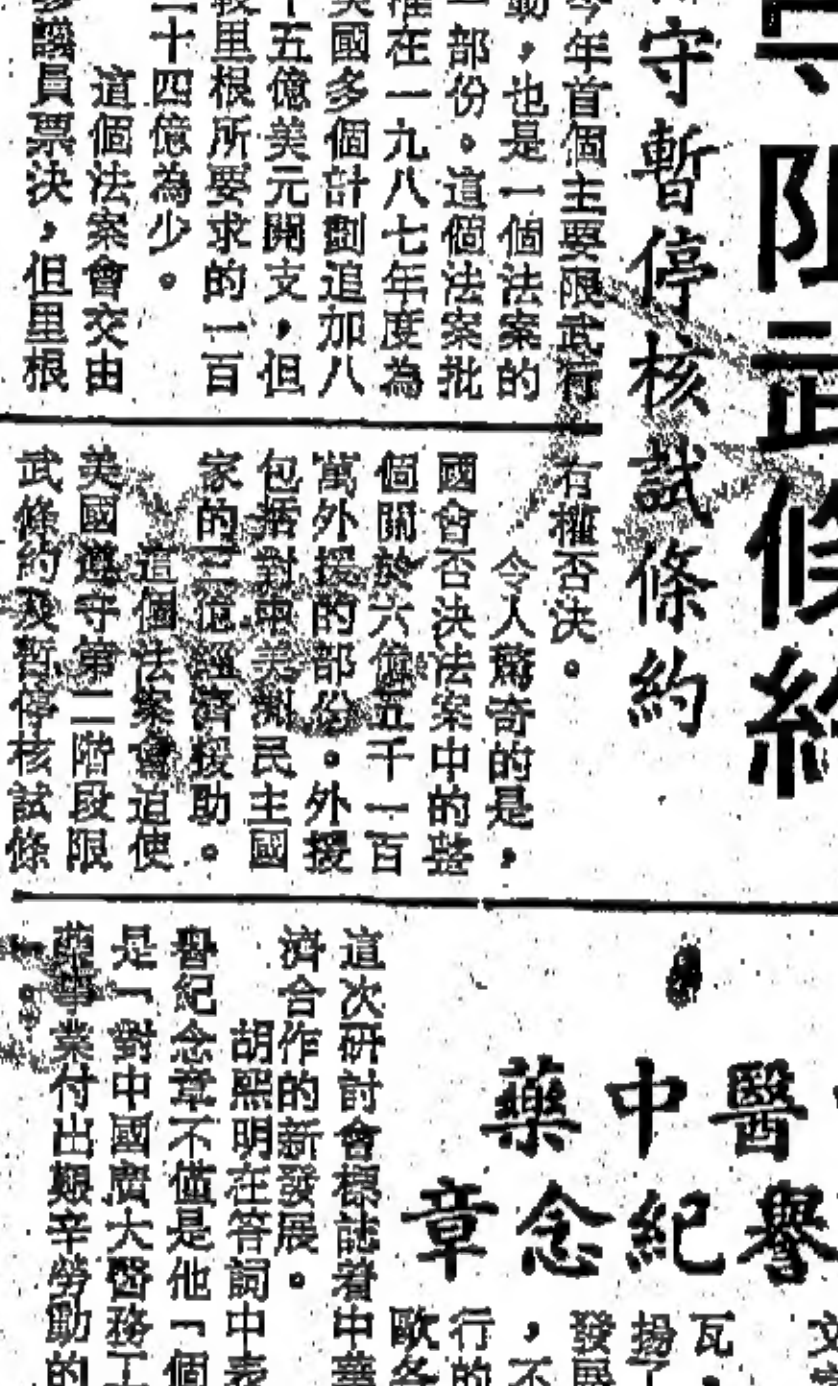 守暫停核試條約
今年首個主要限武行
動，也是一個法案的
一部份。這個法案批
准在一九八七年度為
美國多個計劃追加八
十五億美元開支，但
較里根所要求的一百
二十四億為少。
這個法案會交由
參議員票決，但里根
有權否決。
令人驚奇的是，
國會否決法案中的整
個關於六億五千一百
萬外援的部份。外援
包括對中美洲民主國
家的三億經濟援助。
這個法案會迫使
美國遵守第二階段限
武條約及暫停核試條
醫
中
藥
譽紀念章
瓦
揚了
發展
，不
行的
歐各
這次研討會標誌着中華
濟合作的新發展。
胡熙明在答詞中表
譽紀念章不僅是他一個
是「對中國廣大醫務工
藥事業付出艱辛勞動的